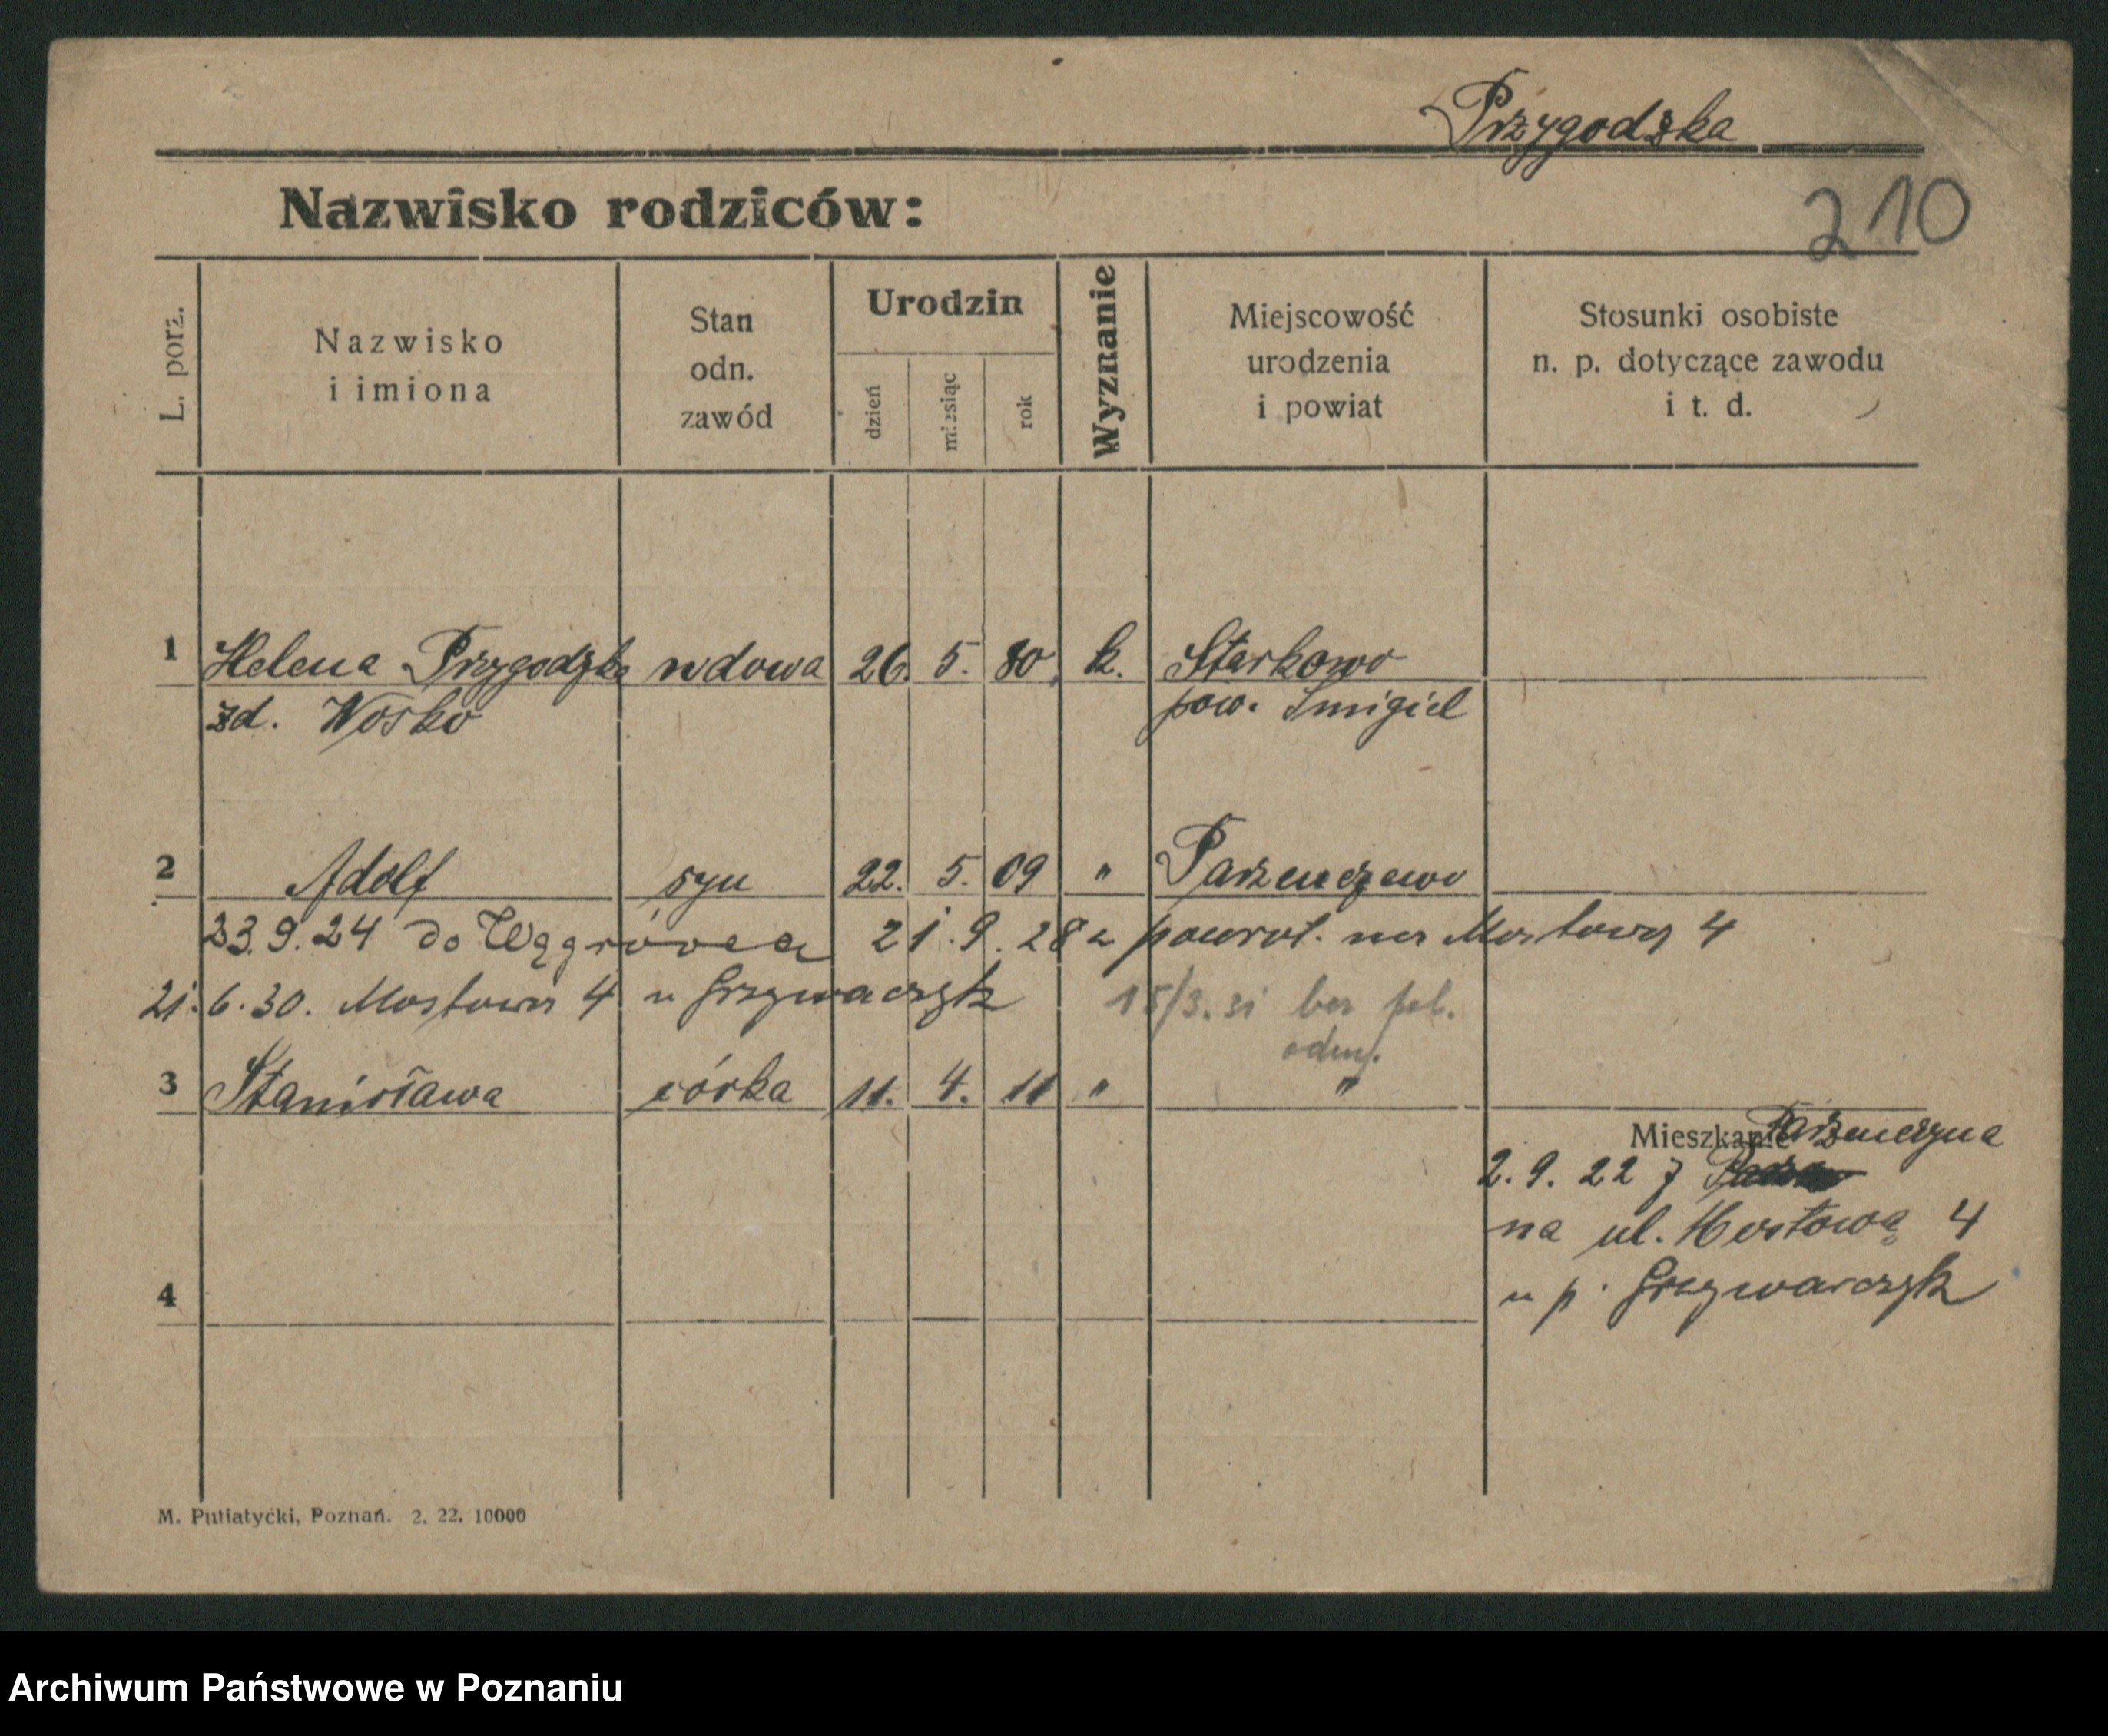 Przygodzka
Nazwisko rodziców:
210
L. porz.
Nazwisko
i imiona
Stan
odn.
zawód
Urodzin
dzień
miesiąc
rok
Wyznanie
Miejscowość
urodzenia
i powiat
Stosunki osobiste
n. p. dotyczące zawodu
i t. d.
1 Helena Przygodzka wdowa 26. 5. 80. k. Starkowo
zd. Wosko pow. Śmigiel
2 Adolf syn 22. 5. 09 " Parzenczewo
23.9.24 do Wągrówca 21.9.28 z powrot. na Mostową 4
21.6.30. Mostowa 4 u Grzywaczyk 15/3.31 bez pob.
odm.
3 Stanisława córka 11. 4. 11 " "
Mieszkanie Parzenczyna
2.9.22 z
na ul. Mostową 4
u p. Grzywaczyk
4
M. Putiatycki, Poznań. 2. 22. 10000
Archiwum Państwowe w Poznaniu